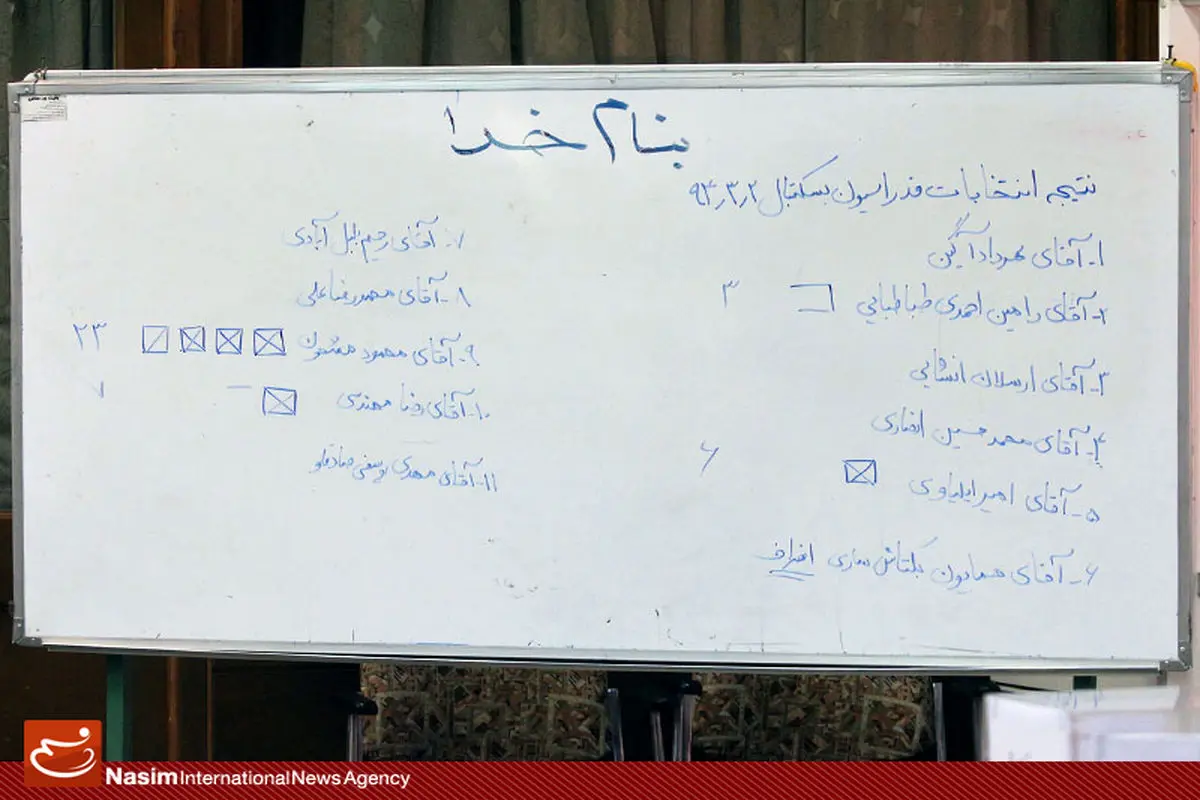 بنام خدا
نتیجه انتخابات فدراسیون بسکتبال ۹۳٫۳٫۲
۱- آقای مهرداد آگین
۲- آقای رامین احمدی طباطبایی ۳
۳- آقای ارسلان انشایی
۴- آقای محمد حسین انصاری
۵- آقای امیر ایلیاوی ۶
۶- آقای همایون بکتاش ساری انصراف
۷- آقای رحیم بلبل آبادی
۸- آقای محمدرضا علی
۹- آقای محمود مشحون ۲۳
۱۰- آقای رضا مهندی ۷
۱۱- آقای مهدی یوسفی صادقلو
Nasim International News Agency